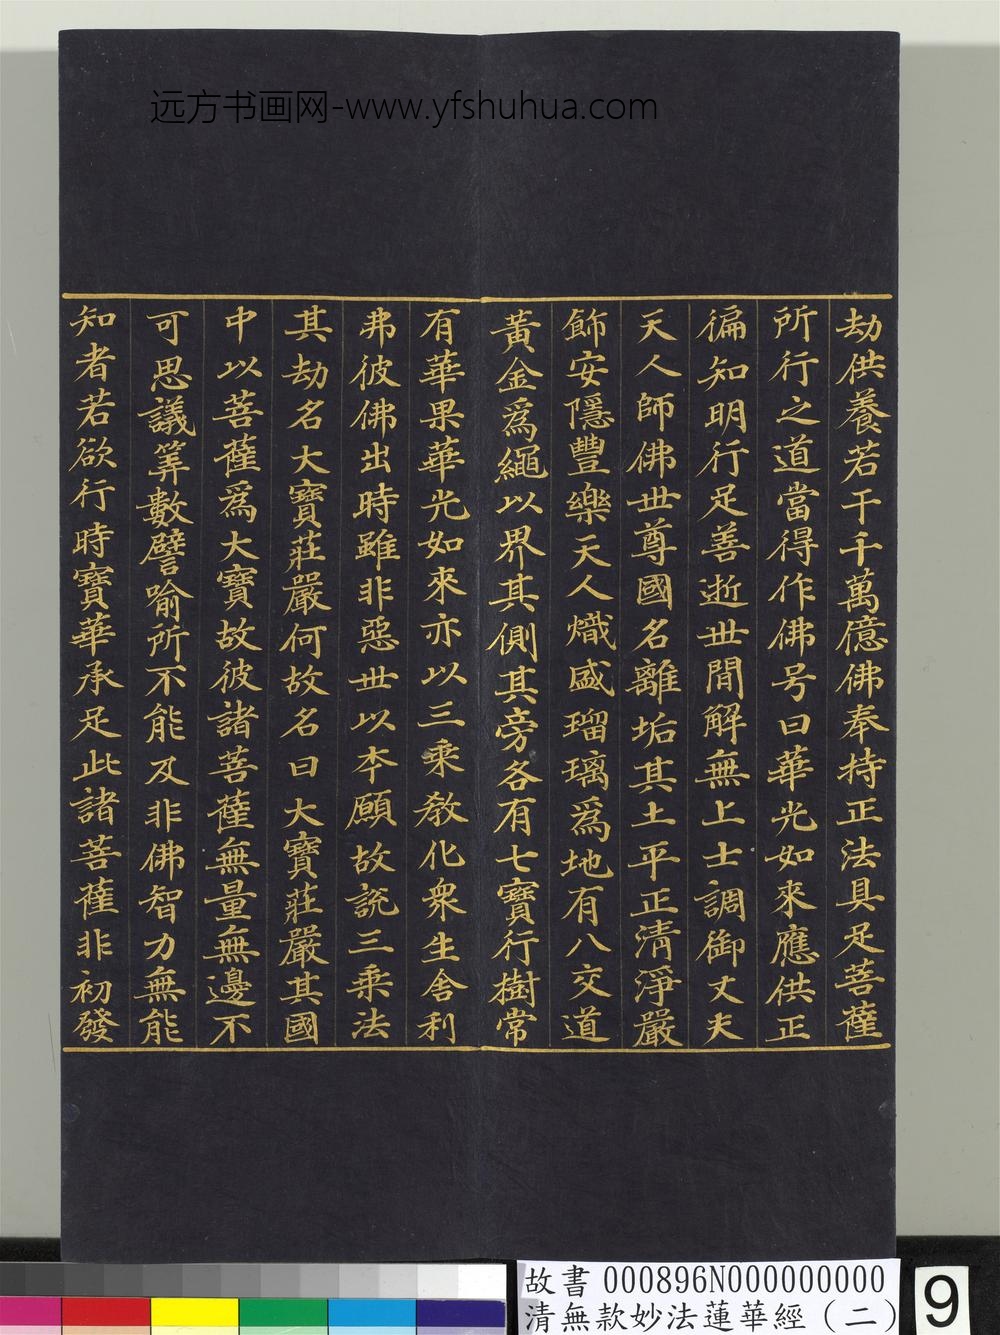 远方书画网-www.yfshuhua.com
劫供養若干千萬億佛奉持正法具足菩薩
所行之道當得作佛号曰華光如來應供正
徧知明行足善逝世間解無上士調御丈夫
天人師佛世尊國名離垢其土平正清淨嚴
飾安隱豐樂天人熾盛瑠璃為地有八交道
黃金為繩以界其側其旁各有七寶行樹常
有華果華光如來亦以三乘教化衆生舍利
弗彼佛出時雖非惡世以本願故說三乘法
其劫名大寶莊嚴何故名曰大寶莊嚴其國
中以菩薩為大寶故彼諸菩薩無量無邊不
可思議筭數譬喻所不能及非佛智力無能
知者若欲行時寶華承足此諸菩薩非初發
故書 000896N000000000
清無款妙法蓮華經(二)
9